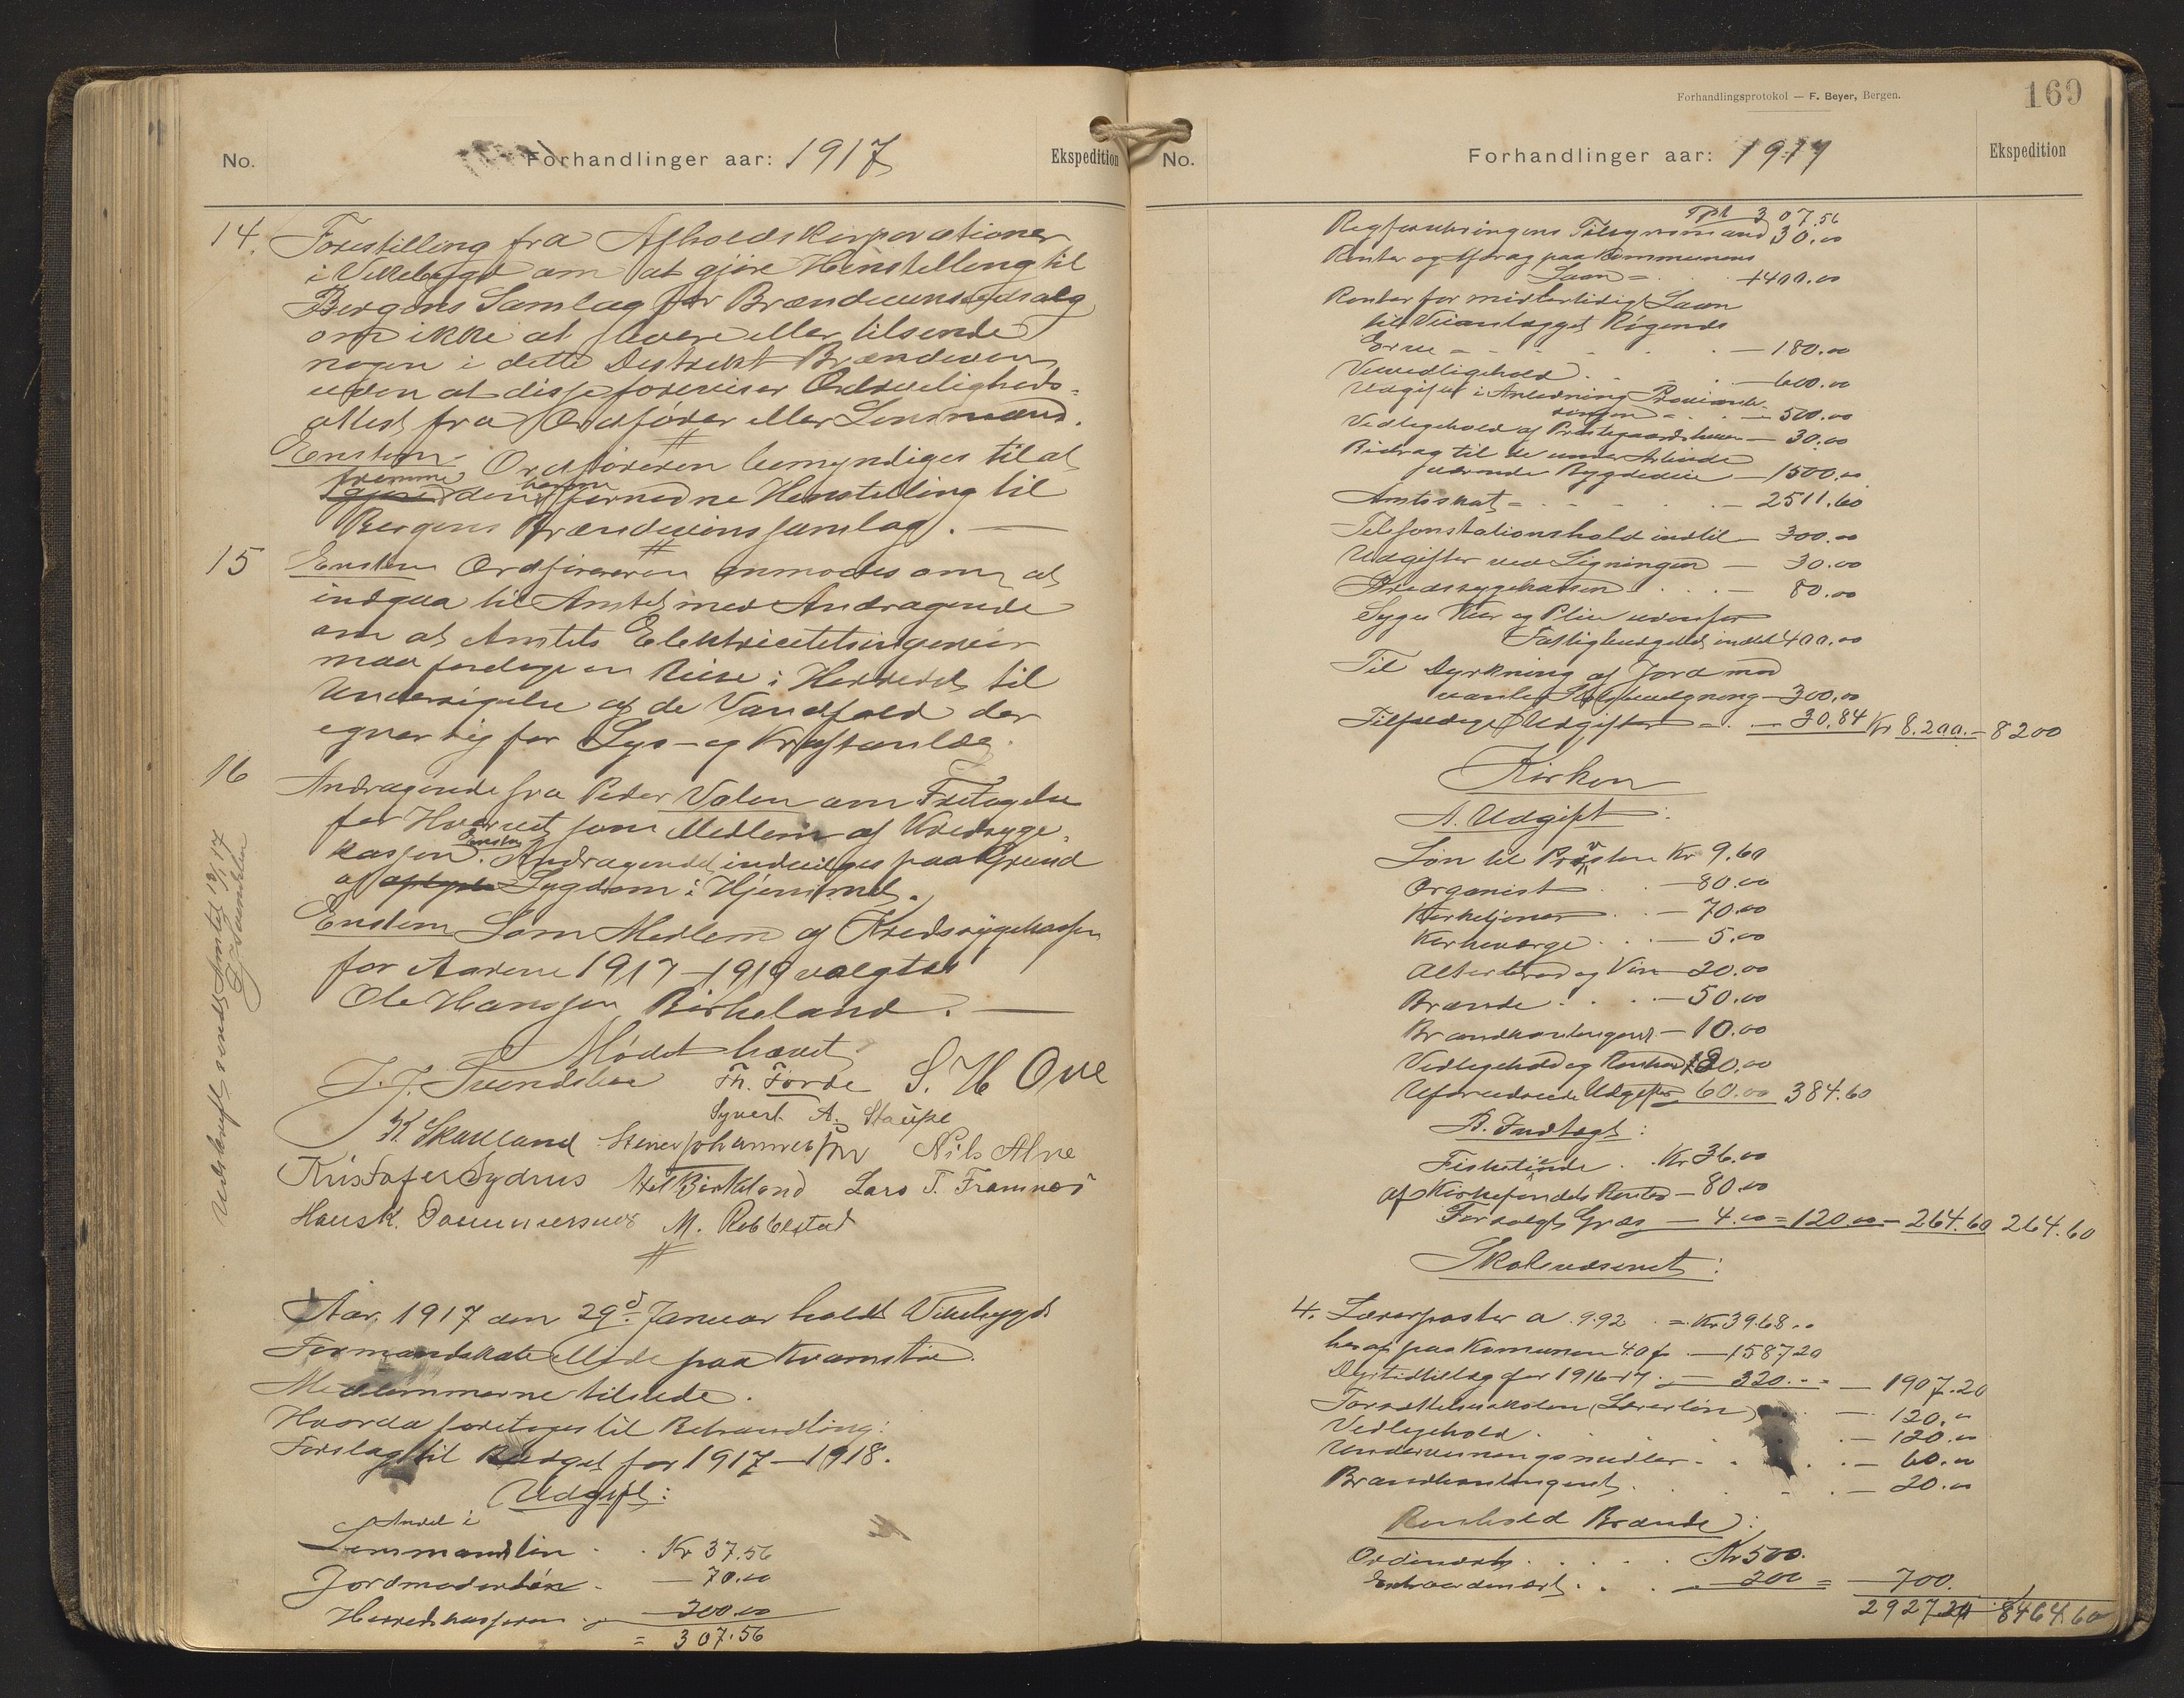 No.
Forhandlinger aar: 1917
Ekspedition
14. Forestilling fra Afholdskorporationer
i Vikebygd om at gjøre Henstilling til
Bergens Samlag for Brændevinsudsalg
om ikke at levere eller tilsende
nogen i dette Destrikt Brændevin
uden at disse foreviser Ædrueligheds-
attest fra Ordfører eller Lensmand.
Enstem. Ordføreren bemyndiges til at
fremme
gjøre den fornødne Henstilling til
Bergens Brændevinssamlag. —
15 Enstem Ordføreren anmodes om at
indgaa til Amtet med Andragende
om at Amtets Elektricitetsingeniør
maa foretage en Reise i Herredet til
Undersøgelse af de Vandfald der
egner sig for Lys- og Kraftanlæg.
16 Andragende fra Peder Valen om Fritagelse
for Hvervet som Medlem af Kredssyge-
kassen. Enstem Andragendet indvilges paa Grund
af Sygdom i Hjemmet.
Enstem Som Medlem af Kredssygekassen
for Aarene 1917–1919 valgtes
Ole Hansen Birkeland. —
Mødet hævet
J. J. Svendsbøe Th. Førde S. H Ove
Syvert A. Staupe
K Skaeland Stener Johannessen Nils Alne
Kristofer Sydnes Axel Birkland Lars T. Framnes
Hans K. M. Rebbestad
Udskrift sendt Amtet 13/2 17
JJSvendsbøe
Aar. 1917 den 29d Januar holdt Vikebygds
Formandskab Møde paa Kvamstø.
Medlemmerne tilstede.
Hvorda foretoges til Behandling:
Forslag til Budget for 1917–1918.
Udgift:
Andel i
Lensmandsløn . . Kr 37.56
Jordmoderløn . — 70.00
Herredskasseren . — 200.00
= 307.56
Forhandlingsprotokol — F. Beyer, Bergen.
169
No.
Forhandlinger aar: 1917
Ekspedition
Tpt 307.56
Røgfeiningens Tilsynsmand 30.00
Renter og Afdrag paa Kommunens
Laan = . 1400.00
Renter for midlertidigt Laan
til Veianlægget Røgenes
Ervee = - - - . — 180.00
Veivedligehold . . . — 600.00
Udgifter i Anledning Proviante-
ringen = . . — 500.00
Vedligehold af Præstegaardshuser — 30.00
Bidrag til de under Arbeide
værende Bygdeveie — 1500.00
Amtsskat = - - - . — 2511.60
Telefonstationshold indtil — 300.00
Udgifter ved Ligningen — 30.00
Kredssygekassen . . . — 80.00
Syges Kur og Pleie udenfor
Fattigbudgettet indtil 400.00
Til Dyrkning af Jord mod
vanlig Statsbevilgning — 300.00
Tilfældige Udgifter = . — 30.84 Kr 8.200.- 8200
Kirken
A. Udgift:
Løn til Præsten Kr 9.60
Organist . . — 80.00
Kirketjener . . — 70.00
Kirkeværge . . . — 5.00
Alterbrød og Vin — 20.00
Brænde . . . . — 50.00
Brandkontingent — 10.00
Vedligehold og Renhold 80.00
Uforudseede Udgifter 60.00 384.60
B. Indtægt:
Fisketiende . Kr 36.00
af Kirkefondets Renter — 80.00
For solgt Græs — 4.00 = 120.00 — 264.60 264.60
Skolevæsenet:
4. Lærerposter a 992 . = Kr 3968..
heraf paa Kommunen 40% . — 1587 20
Dyrtidstillæg for 1916-17 . — 320... — 1907.20
Forsættelsesskolen (Lærerløn) . . — 120.00
Vedligehold . . — 120.00
Undervisningsmidler . . . . — 60.00
Brandkontingent . . . — 20.00
Renhold Brænde:
Ordinært . . . . . Kr 500.
Extraordinært . . . — 200 = 700.
2927 20 8464.60